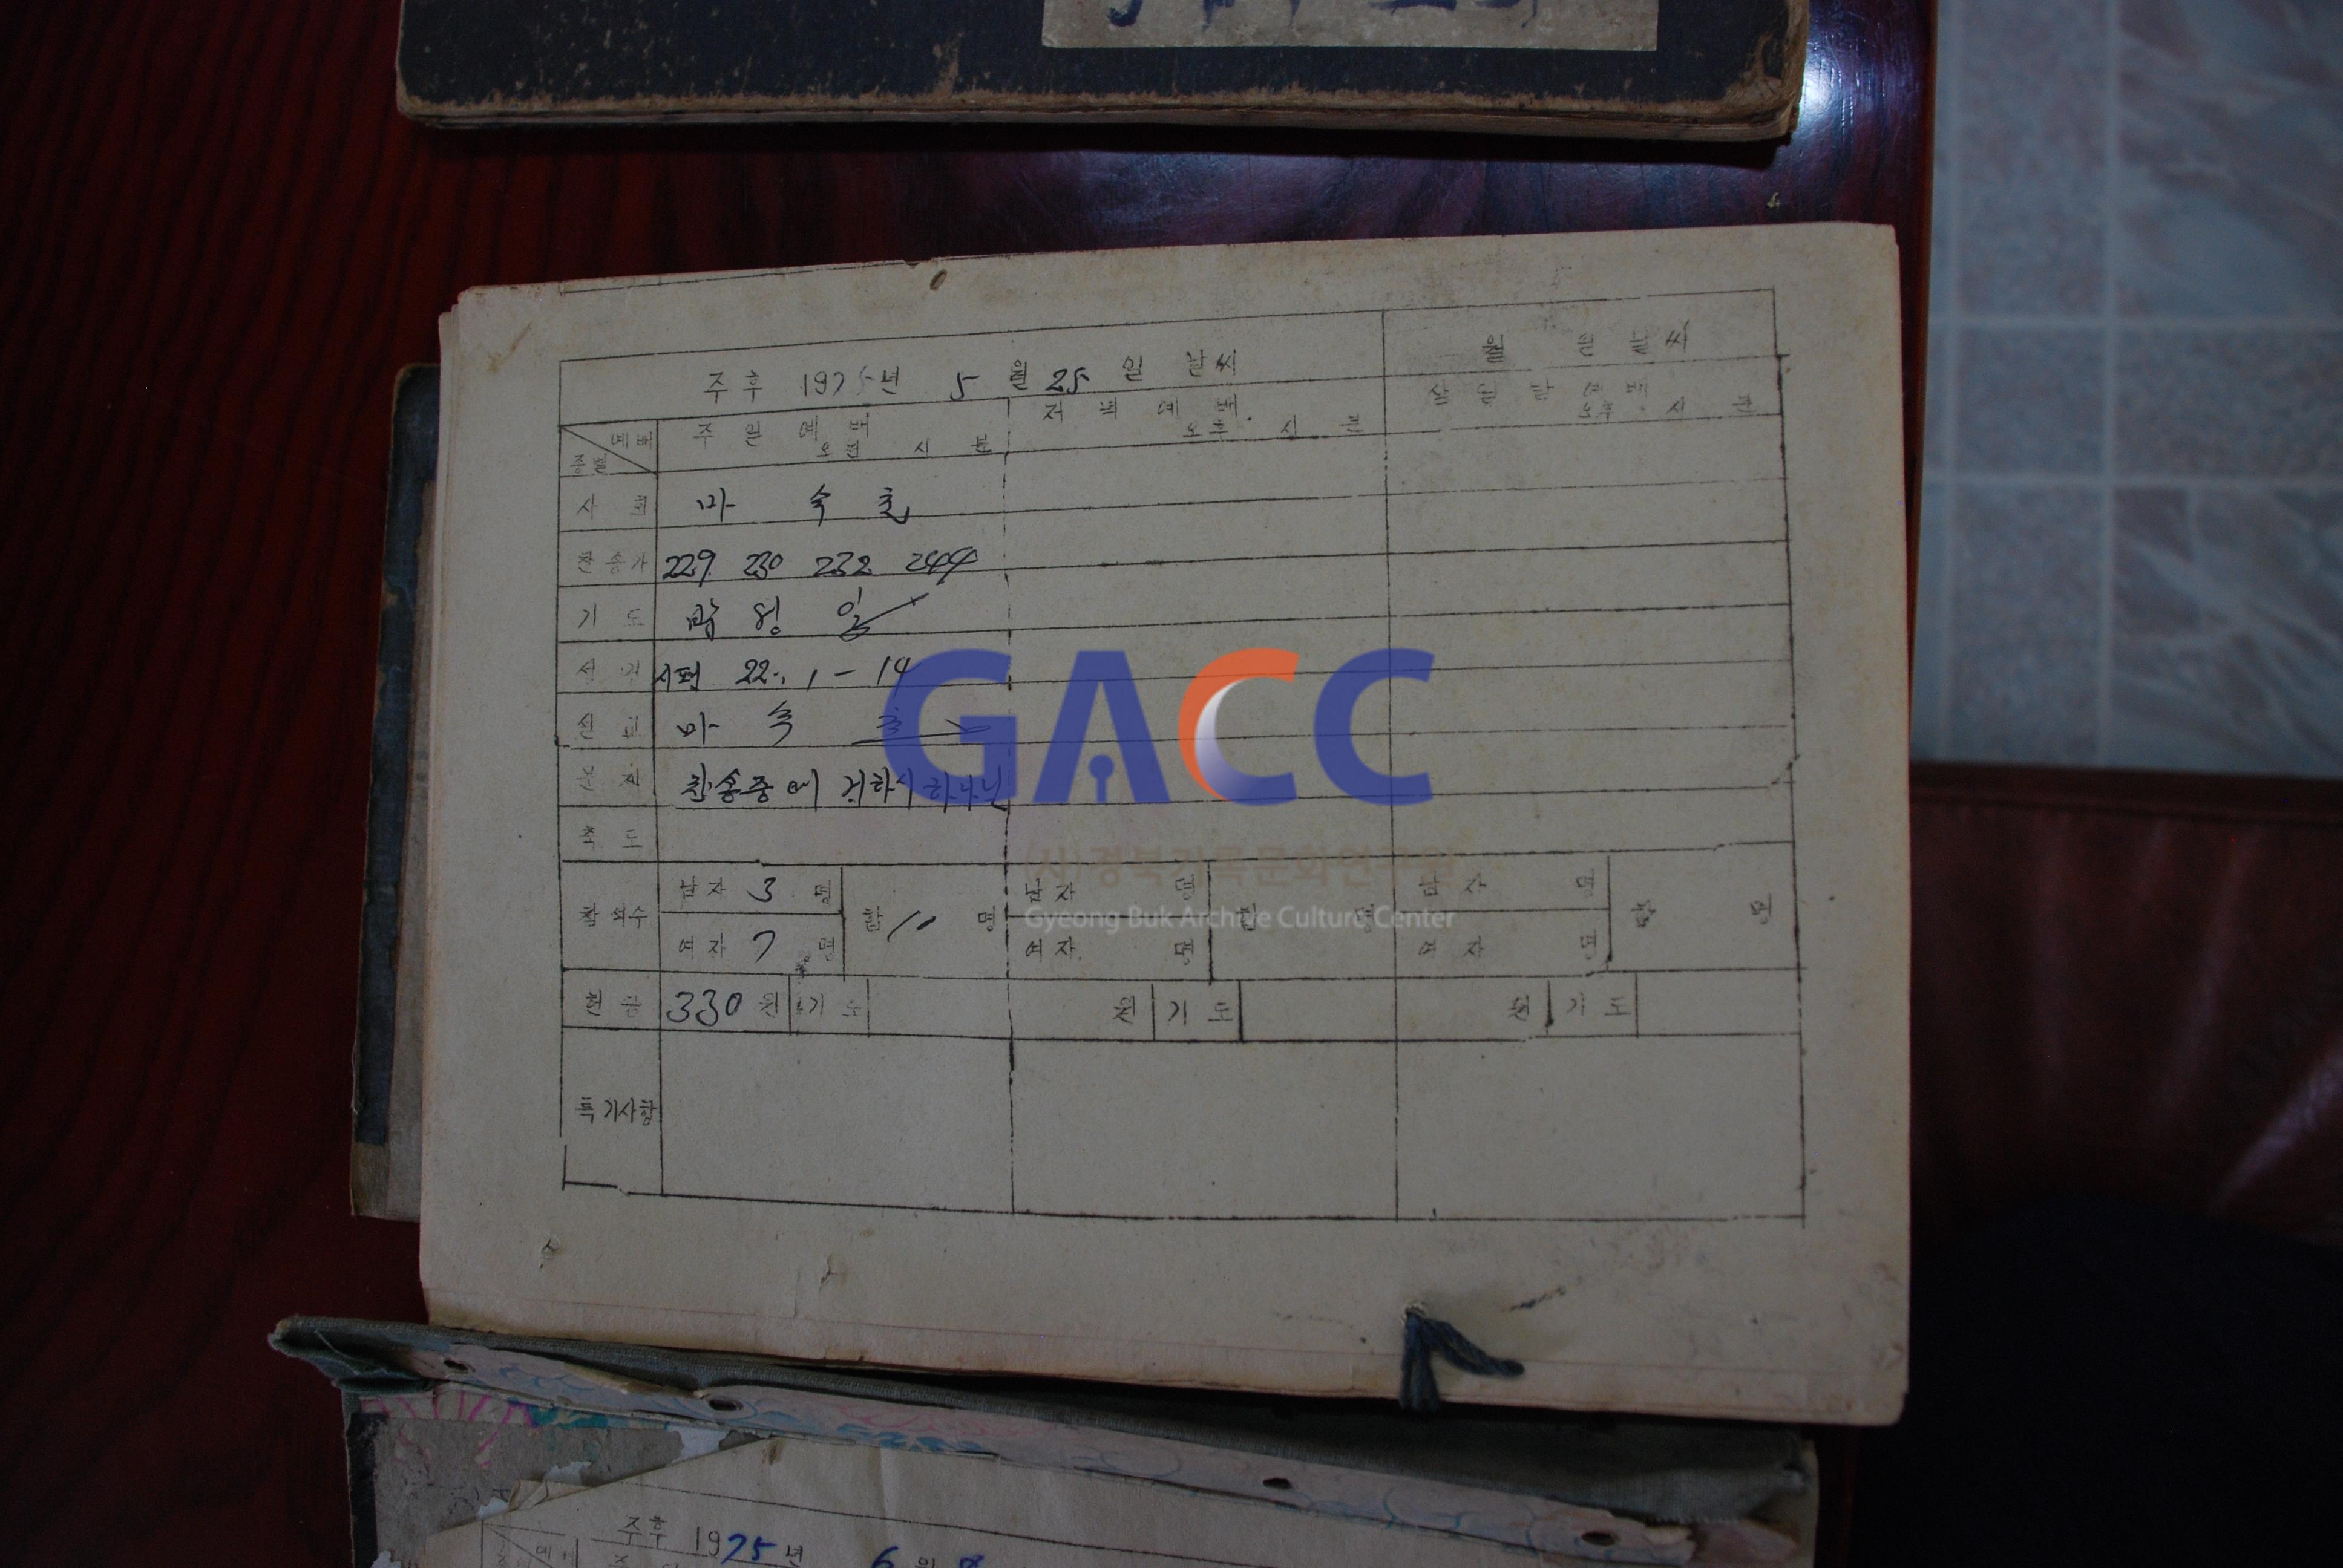 주후 1975년 5월 25일 날씨
월 일 날씨
주일예배
오전 시 분
저녁예배
오후 시 분
삼일밤예배
오후 시 분
예배
종별
사회 마 숙
찬송가 229 230 232 244
기도 박 영 일
시편 22: 1-19
설교 마 숙
찬송중에 거하시 하나님
축도
남자 3 명
여자 7 명
합 명
남자 명
여자 명
남자 명
여자 명
합 명
헌금 330 원 기도 원 기도 원 기도
특기사항
GACC
(사)경북기록문화연구원
Gyeong Buk Archive Culture Center
주후 1975년 6월 8